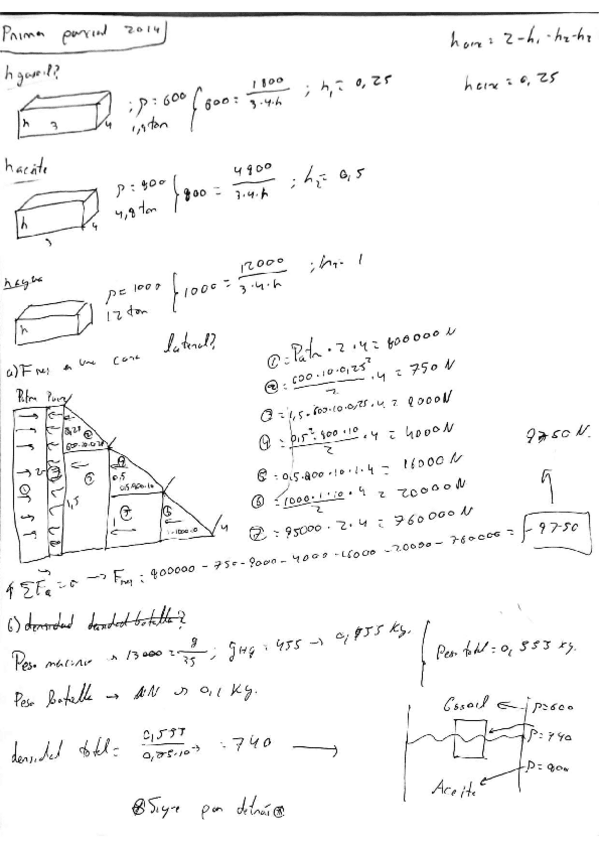 Primer parcial 2014
haire = 2 - h₁ - h₂ - h₃
haire = 0,25
h gasoil?
h 3 4
; ρ = 600
1,8 ton
600 = 1800 / 3·4·h ; h₁ = 0,25
haceite
h 4
ρ = 800
4,8 ton
800 = 4800 / 3·4·h ; h₂ = 0,5
hagua
h
ρ = 1000
12 ton
1000 = 12000 / 3·4·h ; = 1
a) F a una cara lateral?
① = Patm · 2 · 4 = 800000 N
② = 600·10·0,25² / 2 · 4 = 750 N
③ = 1,5·600·10·0,25·4 = 9000 N
④ = 0,5²·800·10 / 2 · 4 = 4000 N
⑤ = 0,5·800·10·1·4 = 16000 N
⑥ = 1000·1·10 / 2 · 4 = 20000 N
⑦ = 95000 · 2 · 4 = 760000 N
9750 N.
Patm
1,5
0,5
0,5·800·10
= 800000 - 750 - 9000 - 4000 - 16000 - 20000 - 760000 = -9750
6) densidad botella?
Peso = 13000 = g / 35 ; gHg = 455 → 0,455 Kg.
Peso total = 0,555 Kg.
Peso botella → 1N → 0,1 Kg.
densidad total = 0,555 / = 740
Gasoil
ρ = 600
ρ = 740
ρ = 800
Aceite
Sigue por detrás